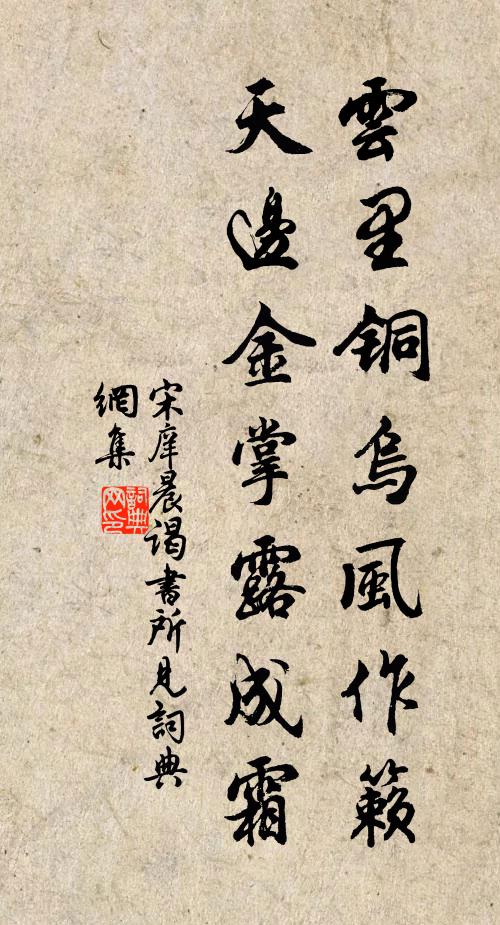 雲里銅烏風作籟
天邊金掌露成霜
宋庠晨谒書所見詞典
網集
詞典网印